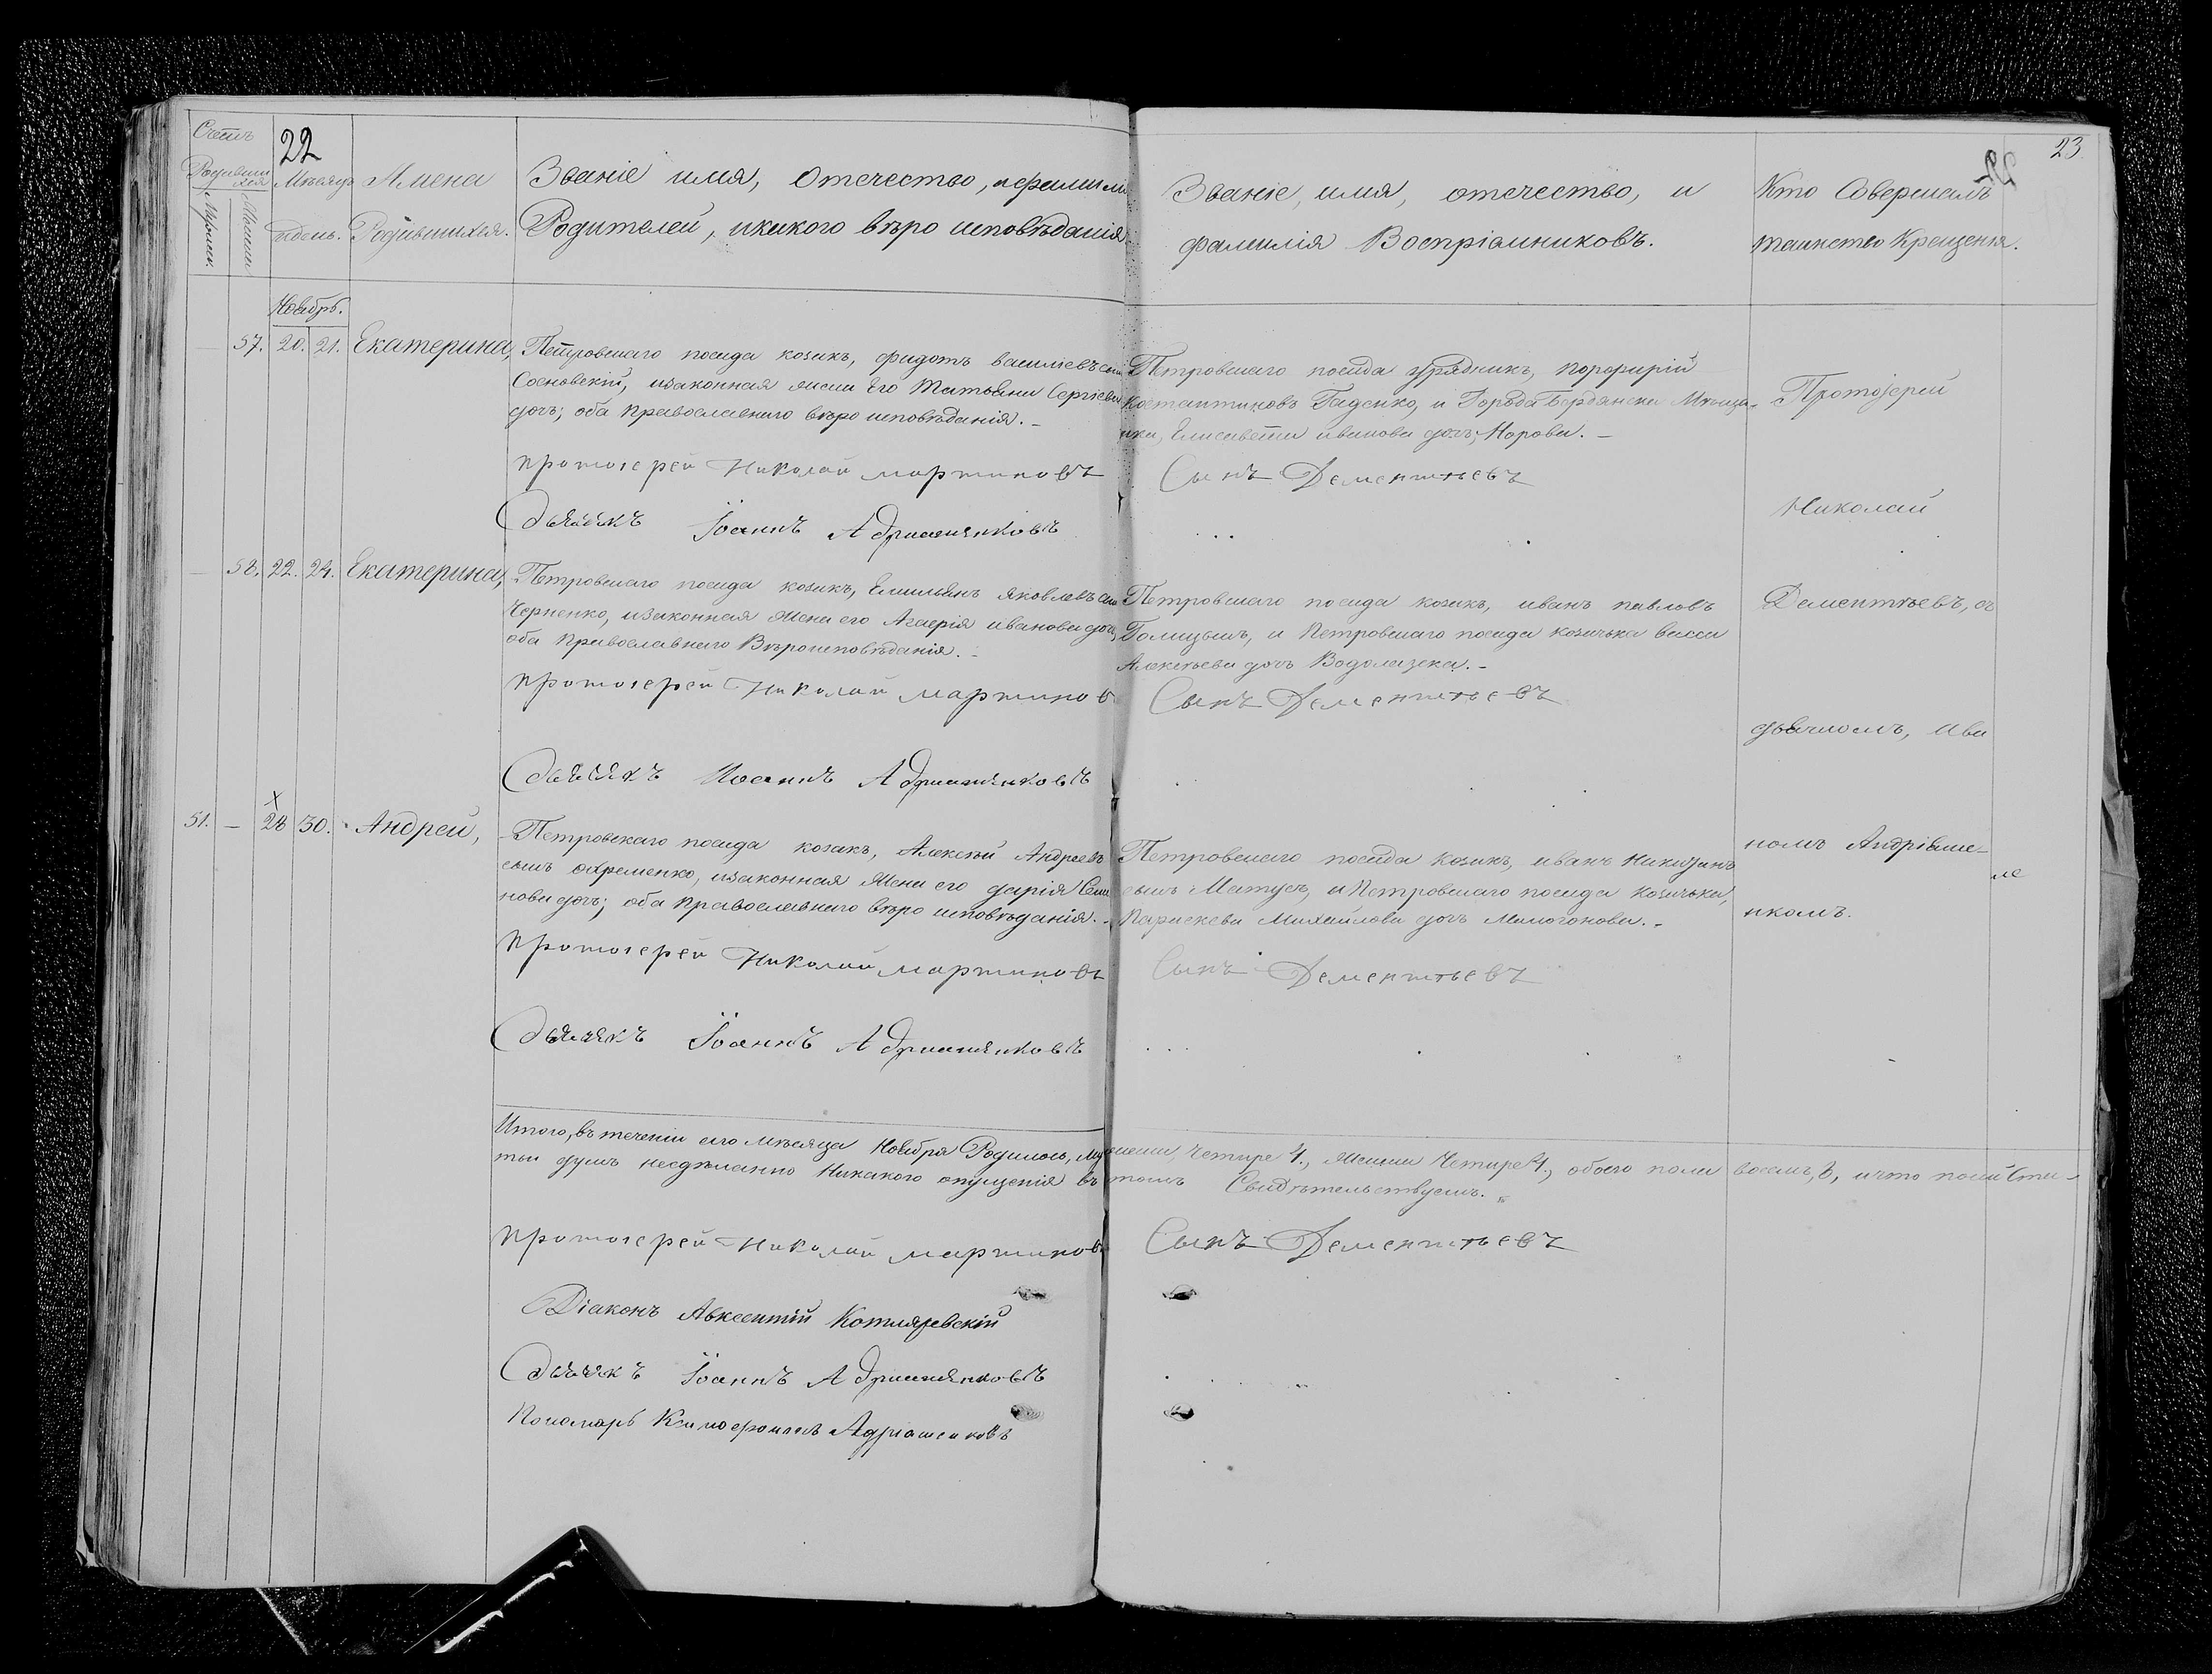 Счетъ
Родивши
хся
Мужеск.
Женски
22
Мѣсяцъ
и день.
Имена
Родившихся.
Званіе имя, Отечество, и фамилія
Родителей, и какого вѣро исповѣданія
Ноябрь.
57. 20. 21. Екатерина,
Петровскаго посада козакъ, Федотъ василіевъ сынъ
Сосновскій, и законная жена Его Татьяна Сергіева
дочь; оба православнаго вѣро исповѣданія. -
протоіерей Николай мартиновъ
Дьячекъ Іоаннъ Адриашенковъ
58. 22. 24. Екатерина,
Петровскаго посада козакъ, Емильянъ яковлевъ сынъ
Черненко, и законная жена его Агаѳія иванова дочь,
оба Православнаго Вѣроисповѣданія. -
протоіерей Николай мартинов
Дьячекъ Иоаннъ Адриашенковъ
х
51. — 28 30. Андрей,
Петровскаго посада козакъ, Алексѣй Андреевъ
сынъ охременко, и законная Жена его дарія Семе
нова дочь; оба Православнаго вѣро исповѣданія. -
протоіерей Николай мартиновъ
Дьячекъ Іоаннъ Адриашенковъ
Итого, въ теченіи сего мѣсяца Ноября Родилось, Мужески, Четыре 4., Женски Четыре 4., обоего пола восемь, 8, и что по сей Ста-
тьи душъ несдѣланно Никакого опущенія въ томъ Свидѣтельствуемъ.
протоіерей Николай мартинов
Діаконъ Авксентій Котляревскій
Дьячекъ Іоаннъ Адриашенковъ
Пономарь Адріашенковъ
23
Званіе, имя, отечество, и
фамилія Воспріэмниковъ.
Кто Совершалъ
таинство Крещенія.
Петровскаго посада урядникъ, порфирій
Костантиновъ Гаденко, и Города Бердянска Мѣща-
нка, Елисавета иванова дочь, Морова. -
Сынъ Дементьевъ
Петровскаго посада козакъ, иванъ павловъ
Голицынъ, и Петровскаго посада козачька васса
Алексѣева дочь Водолазска. -
Сынъ Дементьевъ
Петровскаго посада козакъ, иванъ Никизинъ
сынъ Матусъ, и Петровскаго посада козачька,
Параскева Михайлова дочь Мамогонова. -
Сынъ Дементьевъ
Сынъ Дементьевъ
Протоіерей
Николай
Дементьевъ, съ
дьячкомъ, Ива
номъ Андріаше-
нкомъ.